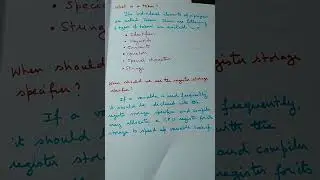 What is a token?
The individual elements of a program
are called Tokens. There are following
6 types of tokens are available
• Identifiers
• Keywords
• Constants
• Operators
• Special characters
• Strings
When should we use the register storage
specifier?
If a variable is used frequently,
it should be declared with the
register storage specifier and compiler
may allocate a CPU register for its
storage to speed up variable lookup.
• Special
• String
When should
register storage
specifier?
If a
frequently,
it should
with the
register stor
and compiler
register for its